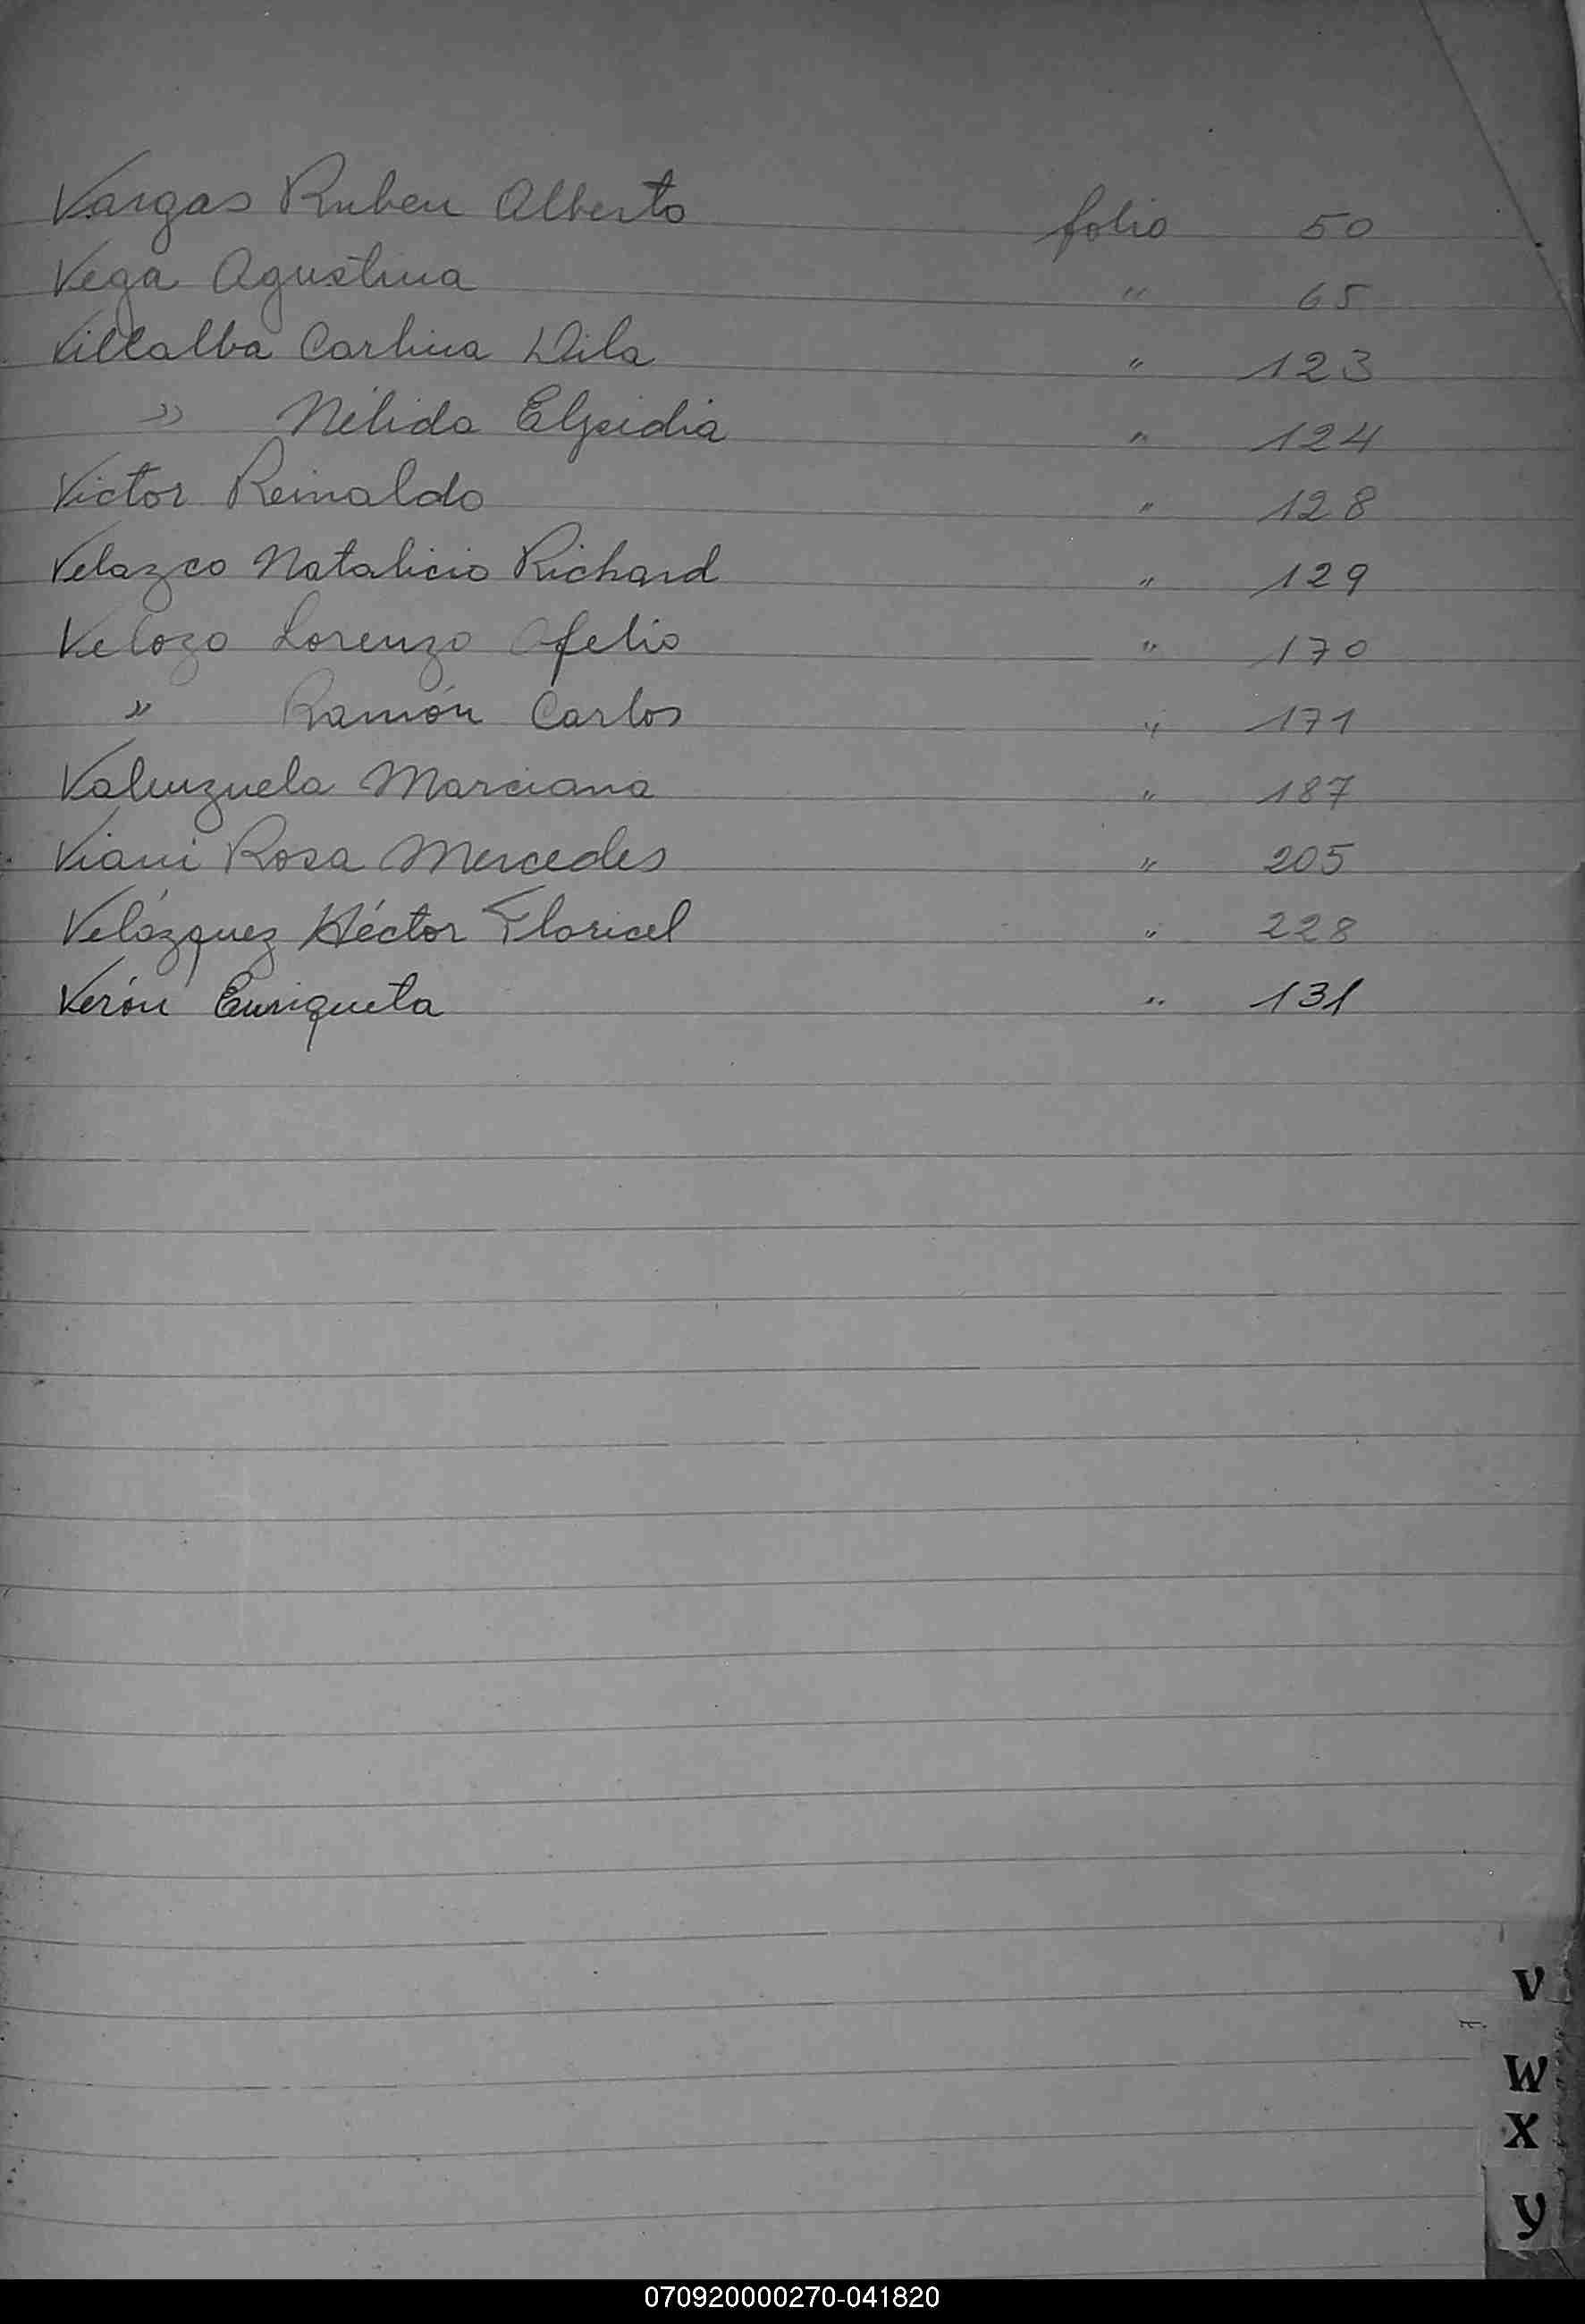 Vargas Ruben Alberto folio 50
Vega Agustina " 65
Villalba Carlina Dila " 123
" Nélida Elpidia " 124
Victor Reinaldo " 128
Velazco Natalicio Richard " 129
Velozo Lorenzo Ofelio " 170
" Ramón Carlos " 171
Valenzuela Marciana " 187
Viani Rosa Mercedes " 205
Velázquez Héctor Floricel " 228
Verón Enriqueta " 131
V
W
X
Y
070920000270-041820